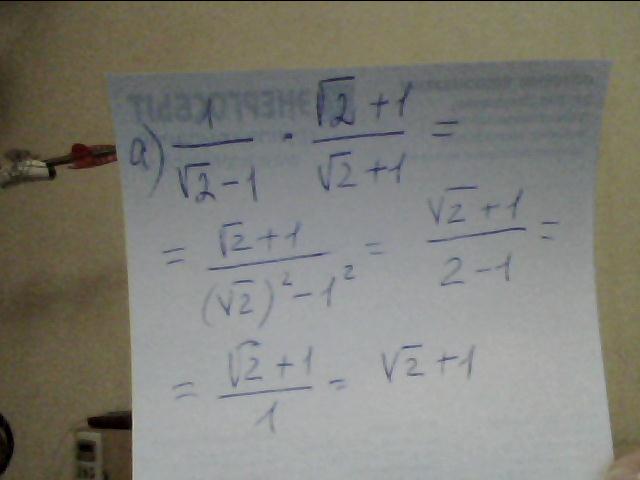 a) 1/(√2-1) · (√2+1)/(√2+1) =
= (√2+1)/((√2)²-1²) = (√2+1)/(2-1) =
= (√2+1)/1 = √2+1